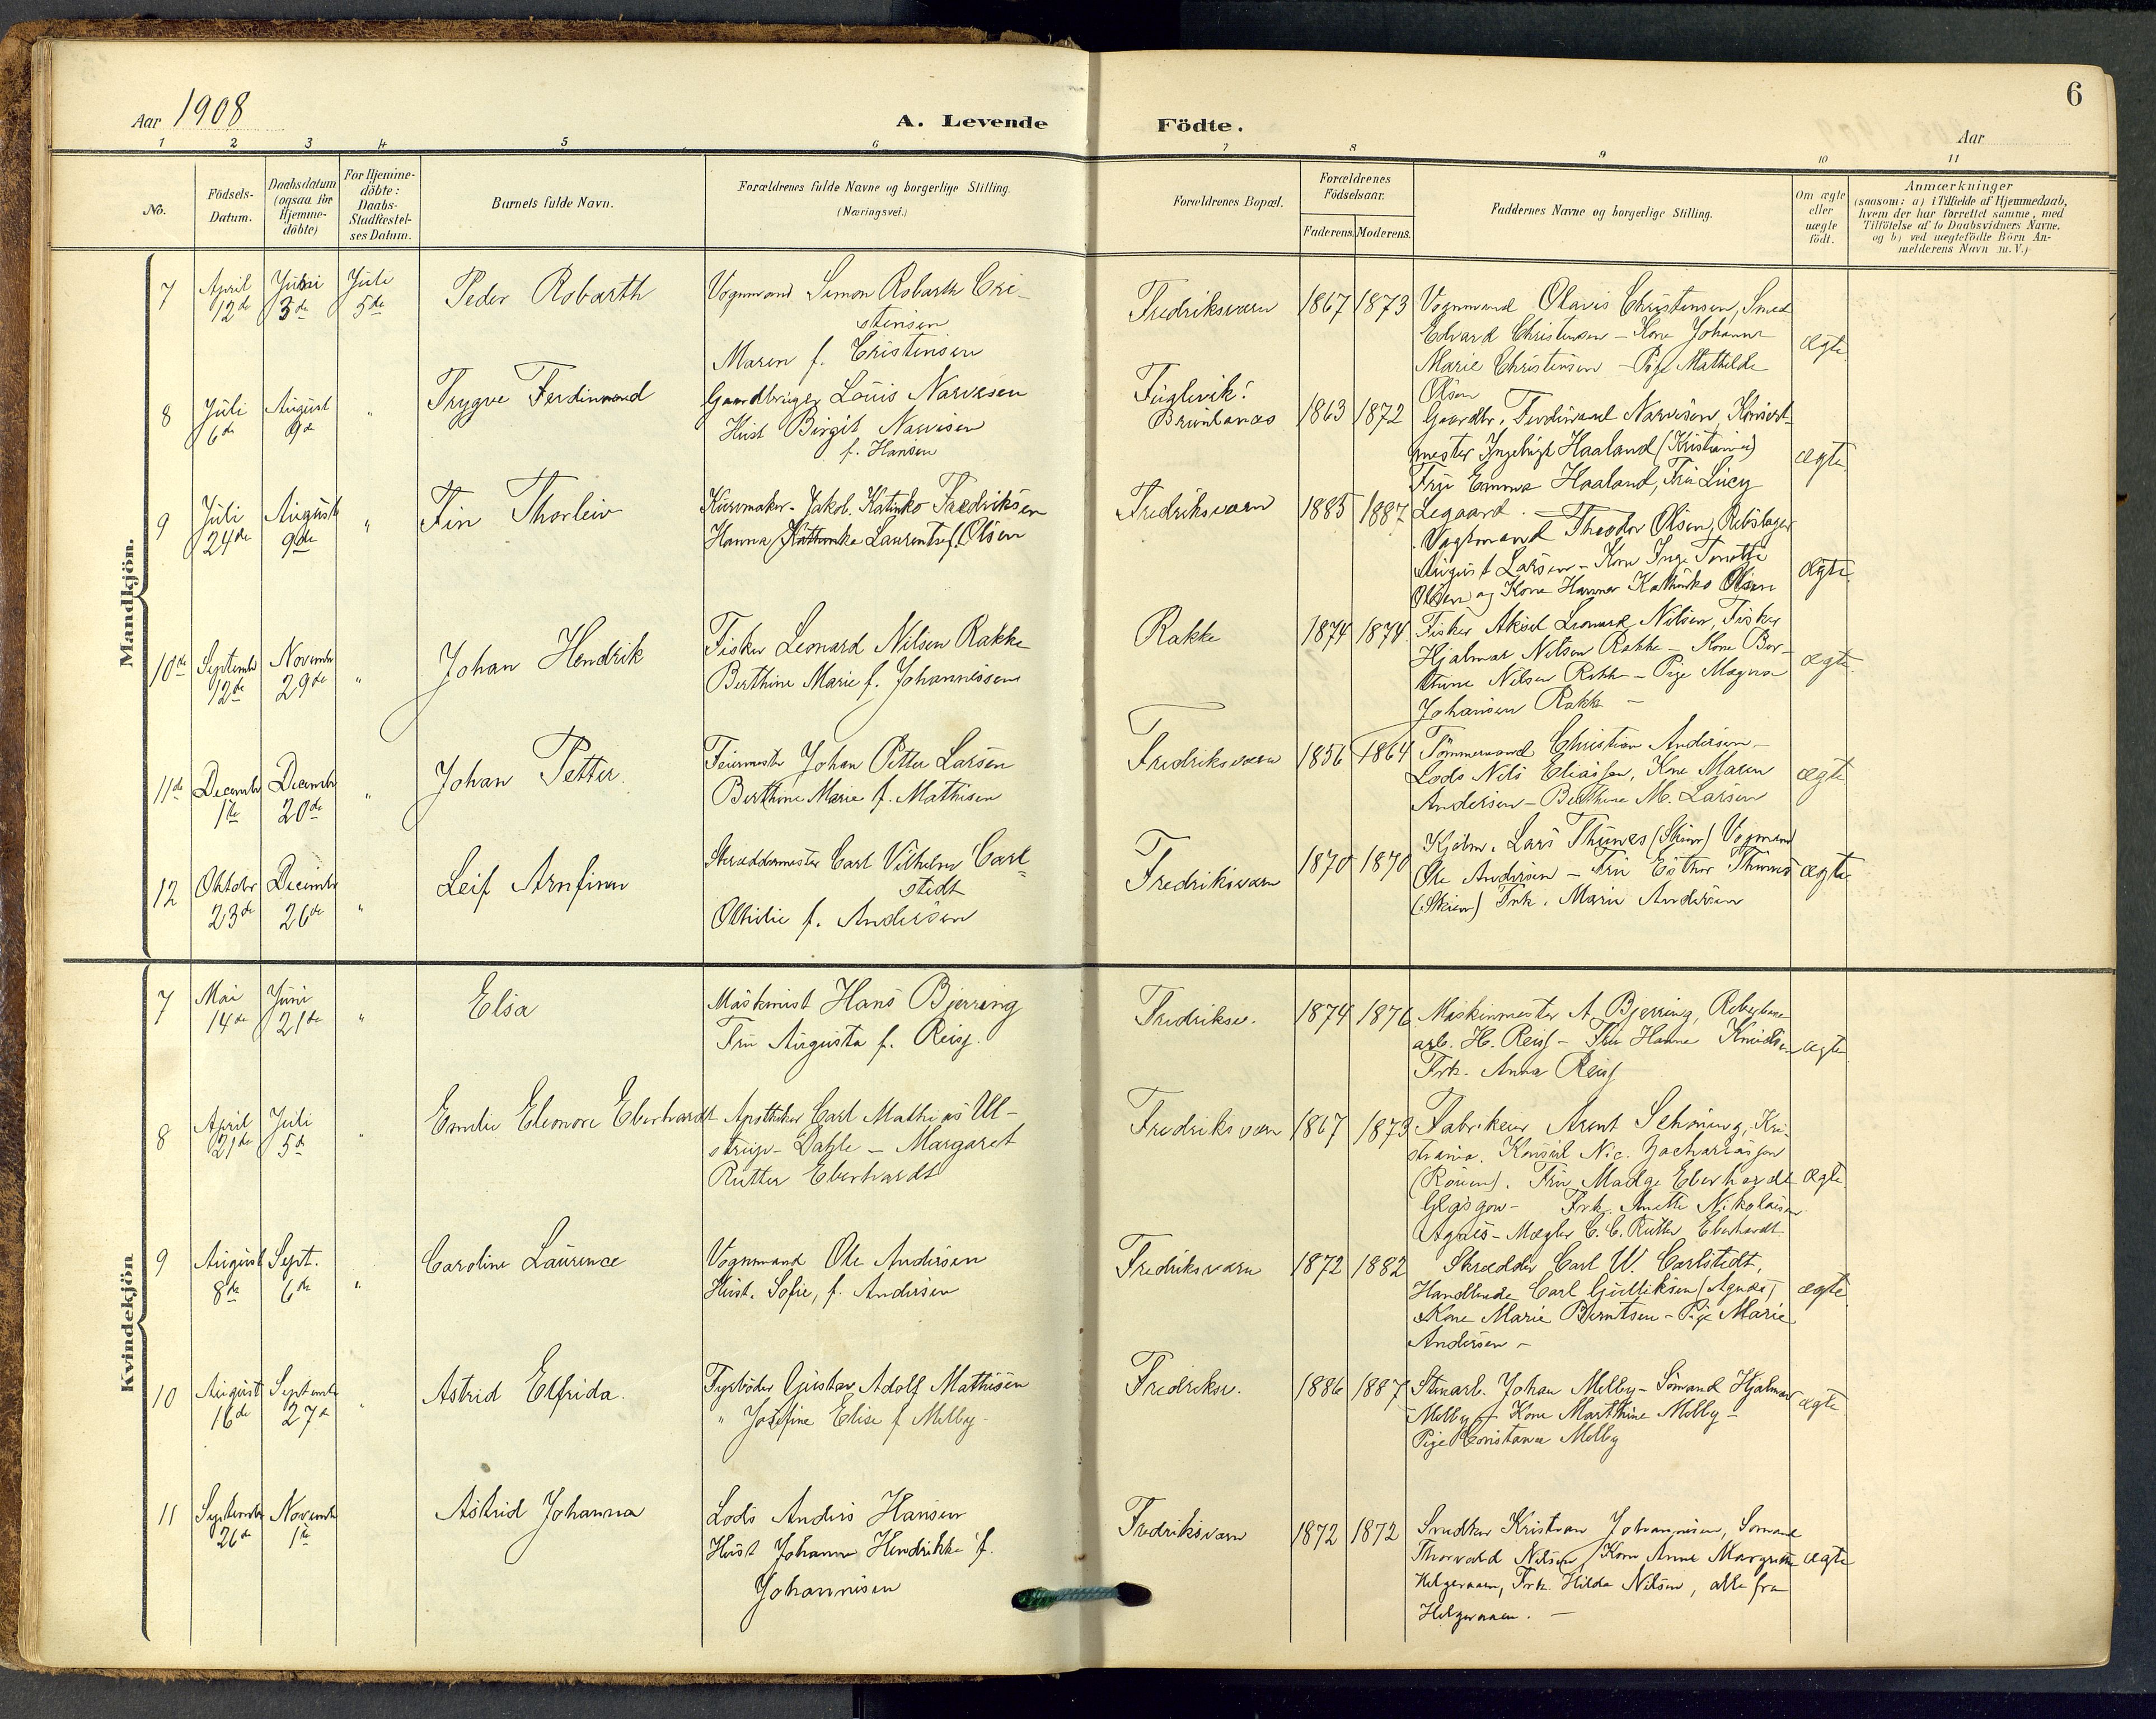 6
Aar 1908
A. Levende Födte.
Aar
1 2 3 4 5 6 7 8 9 10 11
No.
Födsels-Datum.
Daabsdatum (ogsaa for Hjemme-döbte)
For Hjemme-döbte: Daabs-Stadfæstel-ses Datum.
Barnets fulde Navn.
Forældrenes fulde Navne og borgerlige Stilling.
(Næringsvei.)
Forældrenes Bopæl.
Forældrenes Födselsaar.
Faderens. Moderens.
Faddernes Navne og borgerlige Stilling.
Om ægte eller uægte födt.
Anmærkninger
(saasom: a) i Tilfælde af Hjemmedaab,
hvem der har forrettet samme, med
Tilföielse af to Daabsvidners Navne,
og b) ved uægtefödte Börn An-
melderens Navn m.V.)
Mandkjön.
7 April 12de 3de Juli 5de Peder Robarth
Vognmand Simon Robarth Cri-
stensen
Maren f. Cristensen
Fredriksværn 1867 1873
Vognmand Olavis Christensen, Smed
Edvard Christensen - Kone Johanne
Marie Christensen - Pige Mathilde
Olsen
ægte
8 Juli 6de August 9de " Trygve Ferdinand
Gaardbruger Louis Narvesen
Hust Birgit Narvesen
f. Hansen
Fuglevik
Brunlanæs 1863 1872
Gaardbr. Ferdinand Narvesen, Konsert-
mester Ingebrigt Haaland (Kristiania)
Fru Emma Haaland, Fru Lucy
Legaard.
ægte
9 Juli 24de August 9de " Fin Thorleiv
Kurvmaker Jakob Katinko Fredriksen
Hanna Laurentse f. Olsen
Fredriksværn 1885 1887
Vagtmand Theodor Olsen, Rebslager
August Larsen - Kone Inge Tonette
Olsen og Kone Hanna Kathinka Olsen
ægte
10de September 12de November 29de " Johan Hendrik
Fisker Leonard Nilsen Rakke
Berthine Marie f. Johannessen
Rakke 1874 1874
Fisker Aksel Leonard Nilsen, Fisker
Hjalmar Nilsen Rakke - Kone Ber-
thine Nilsen Rakke - Pige Magna
Johansen Rakke -
ægte
11de December 1te December 20de " Johan Petter.
Feiermester Johan Petter Larsen
Berthine Marie f. Mathisen
Fredriksværn 1856 1864
Tömmermand Christian Andersen -
Lods Nils Eliassen, Kone Maren
Andersen - Berthine M. Larsen
ægte
12 Oktober 23de December 26de " Leif Arnfinn
Skræddermester Carl Vilhelm Carl-
stedt
Othilie f. Andersen
Fredriksværn 1870 1870
Kjöbm. Lars Thunes (Skien) Vognmand
Ole Andersen - Fru Esther Thunes
(Skien) Frk. Marie Andersen
ægte
Kvindekjön
7 Mai 14de Juni 21de " Elsa
Maskinist Hans Bjerring
Fru Augusta f. Reis.
Fredriksv. 1874 1876
Maskinmester A. Bjerring,
arb. H. Reis - Fru Hanne Knudsen
Frk. Anna Reis
ægte
8 April 21de Juli 5de " Emilie Eleonore Eberhardt
Apotheker Carl Mathias Ul-
strup-Dahle - Margaret
Rutter Eberhardt
Fredriksværn 1867 1873
Fabrikeier Arent Schöning, Kri-
stiania. Konsul Nic. Zachariassen
(Rouen). Fru Madge Eberhardt
Glasgow - Frk. Anette Nikolaisen
Agnes - Mægler C. C. Rutter Eberhardt.
ægte
9 August 8de Sept. 6de " Caroline Laurence
Vognmand Ole Andersen
Hust. Sofie, f. Andersen
Fredriksværn 1872 1882
Skrædder Carl W. Carlstedt,
Handlende Carl Gulliksen (Agnæs)
Kone Marie Berntsen - Pige Marie
Andersen -
ægte
10 August 16de September 27de " Astrid Elfrida.
Fyrböder Gustav Adolf Mathisen
" Josefine Elise f Melby -
Fredriksv. 1886 1887
Stenarb. Johan Melby - Sömand Hjalmar
Melby - Kone Marthine Melby -
Pige Constance Melby
ægte
11 September 26de November 1te Astrid Johanna
Lods Anders Hansen
Hust Johanne Hendrikke f.
Johannesen
Fredriksværn 1872 1872
Snedker Kristian Johannesen, Sömand
Thorvald Nilsen, Kone Anne Margrethe
Helgeraaen, Frk. Hilda Nilsen, alle fra
Helgeraaen. -
ægte